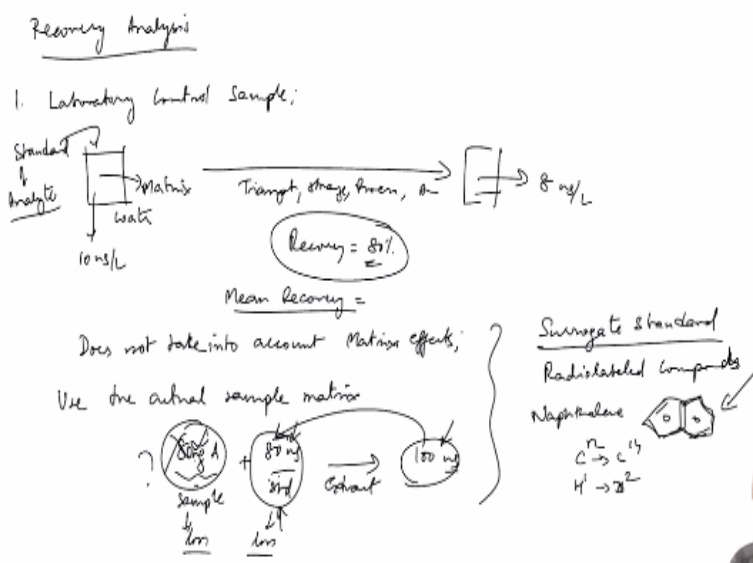 Recovery Analysis
1. Laboratory Control Sample;
Standard
of
Analyte
Matrix
Water
10 ng/L
Transport, storage, Process, A
8 ng/L
Recovery = 80%
Mean Recovery =
Does not take into account Matrix effects;
Use the actual sample matrix
?
80ng
+
80 ng
std
Extract
100 ng
sample
loss
loss
Surrogate Standard
Radiolabeled Compounds
Naphthalene
C12 → C13
H1 → D2